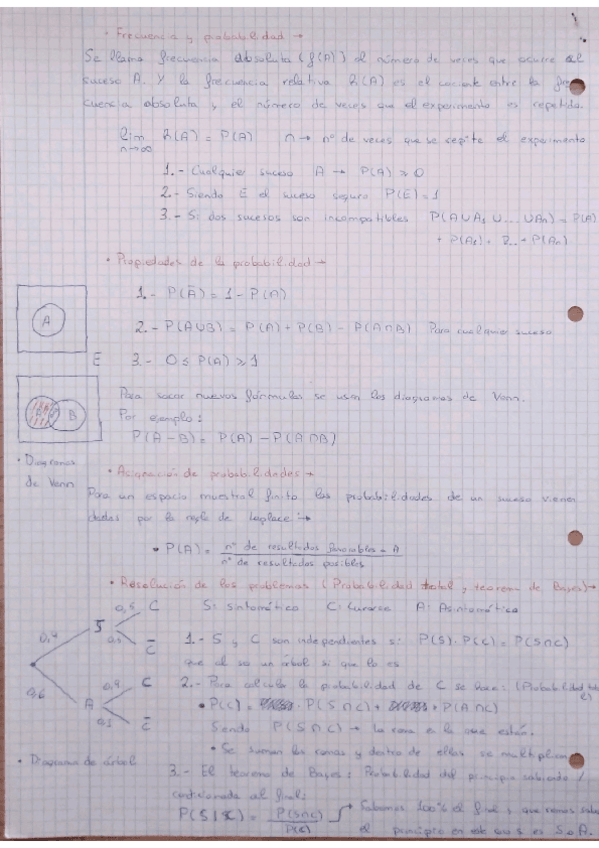 • Frecuencia y probabilidad →
Se llama frecuencia absoluta (f(A)) al número de veces que ocurre el
suceso A. Y la frecuencia relativa h(A) es el cociente entre la fre
cuencia absoluta y el número de veces que el experimento es repetido.
lim h(A) = P(A) n → nº de veces que se repite el experimento
n→∞
1.- Cualquier suceso A → P(A) ≥ 0
2.- Siendo E el suceso seguro P(E) = 1
3.- Si dos sucesos son incompatibles P(A∪A₁ ∪... ∪An) = P(A)
+ P(A₁) + ... + P(An)
• Propiedades de la probabilidad →
1.- P(Ā) = 1 - P(A)
A
2.- P(A∪B) = P(A) + P(B) - P(A∩B) Para cualquier suceso
E
3.- 0 ≤ P(A) ≥ 1
Para sacar nuevas fórmulas se usan los diagramas de Venn.
B
Por ejemplo:
P(A - B) = P(A) - P(A∩B)
• Diagramas
de Venn
• Asignación de probabilidades →
Para un espacio muestral finito las probabilidades de un suceso vienen
dadas por la regla de Laplace: →
• P(A) = nº de resultados favorables A
nº de resultados posibles
• Resolución de los problemas (Probabilidad total y teorema de Bayes) →
S: sintomático C: Curarse A: Asintomático
0,4 S C C̄
0,6 A C C̄
1.- S y C son independientes si P(S)·P(C) = P(S∩C)
que al ser un árbol si que lo es
2.- Para calcular la probabilidad de C se hace: (Probabilidad
• P(C) = P(S∩C) + P(A∩C)
Siendo P(S∩C) → la rama en la que están.
• Se suman las ramas y dentro de ellas se multiplican
• Diagrama de árbol
3.- El teorema de Bayes: Probabilidad del principio sabiendo /
condicionada al final:
P(S|C) = P(S∩C) → Sabemos 100% el final y que
P(C) el principio en este caso es S o A.